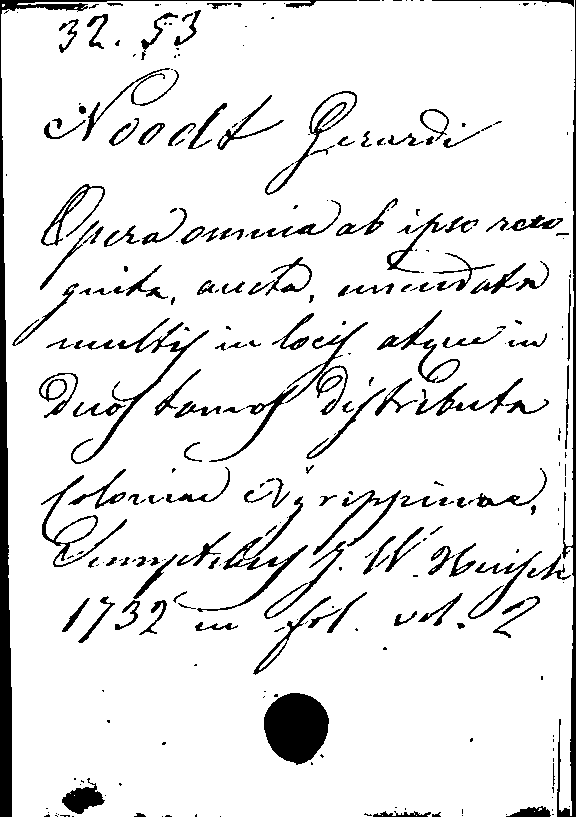 32. 53
Noodt Gerardi
Opera omnia ab ipso reco-
gnita, aucta, emendata
multis in locis atque in
duos tomos distributa
Coloniae Agrippinae,
Sumptibus J. W. Huisch
1732 in fol. vol. 2